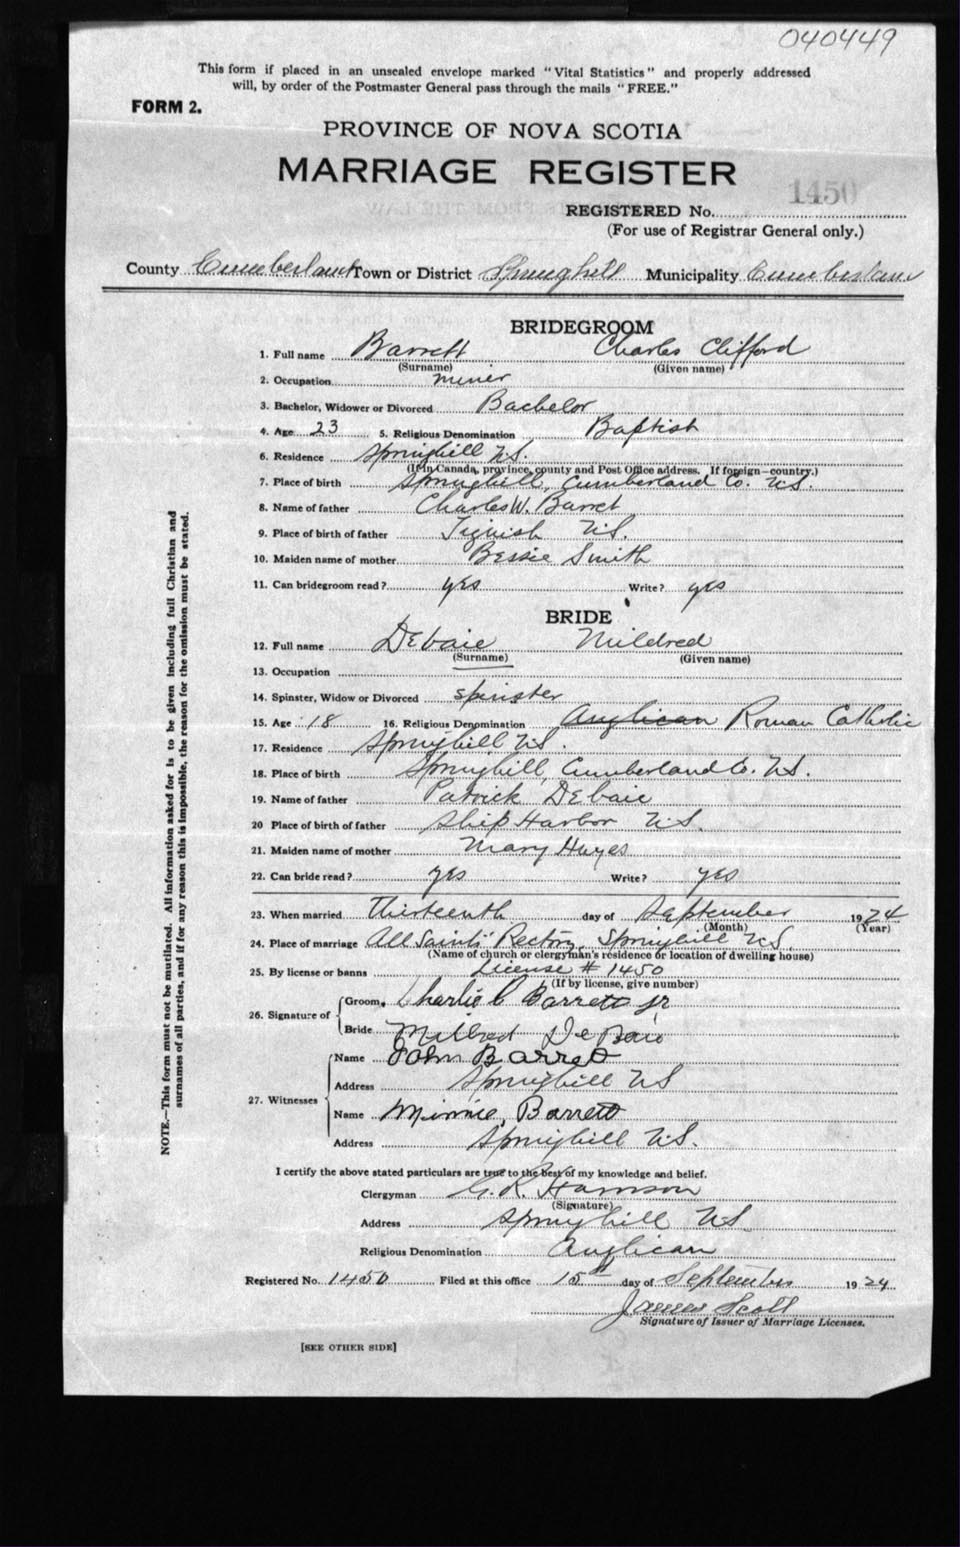 040449
This form if placed in an unsealed envelope marked "Vital Statistics" and properly addressed
will, by order of the Postmaster General pass through the mails "FREE."
FORM 2.
PROVINCE OF NOVA SCOTIA
MARRIAGE REGISTER
1450
REGISTERED No.
(For use of Registrar General only.)
County Cumberland Town or District Springhill Municipality Cumberland
BRIDEGROOM
1. Full name Barrett Charles Clifford
(Surname) (Given name)
2. Occupation miner
3. Bachelor, Widower or Divorced Bachelor
4. Age 23 5. Religious Denomination Baptist
6. Residence Springhill N.S.
(If in Canada, province, county and Post Office address. If foreign—country.)
7. Place of birth Springhill, Cumberland Co. N.S.
8. Name of father Charles W. Barret
9. Place of birth of father Tignish N.S.
10. Maiden name of mother Bessie Smith
11. Can bridegroom read? yes Write? yes
BRIDE
12. Full name DEbaie Mildred
(Surname) (Given name)
13. Occupation
14. Spinster, Widow or Divorced spinster
15. Age 18 16. Religious Denomination Anglican Roman Catholic
17. Residence Springhill N.S.
18. Place of birth Springhill, Cumberland Co. N.S.
19. Name of father Patrick DEbaie
20 Place of birth of father Ship Harbor N.S.
21. Maiden name of mother Mary Hayes
22. Can bride read? yes Write? yes
23. When married Thirteenth day of September 1924
(Month) (Year)
24. Place of marriage All Saints' Rectory, Springhill N.S.
(Name of church or clergyman's residence or location of dwelling house)
25. By license or banns License # 1450
(If by license, give number)
26. Signature of
Groom, Charlie C Barrett jr
Bride Mildred DeBaie
27. Witnesses
Name John Barret
Address Springhill N.S
Name Minnie Barrett
Address Springhill N.S.
I certify the above stated particulars are true to the best of my knowledge and belief.
Clergyman G. R. Harrison
(Signature)
Address Springhill N.S
Religious Denomination Anglican
Registered No. 1450 Filed at this office 15th day of September 1924
James Scott
Signature of Issuer of Marriage Licenses.
[SEE OTHER SIDE]
NOTE.—This form must not be mutilated. All information asked for is to be given including full Christian and
surnames of all parties, and if for any reason this is impossible, the reason for the omission must be stated.